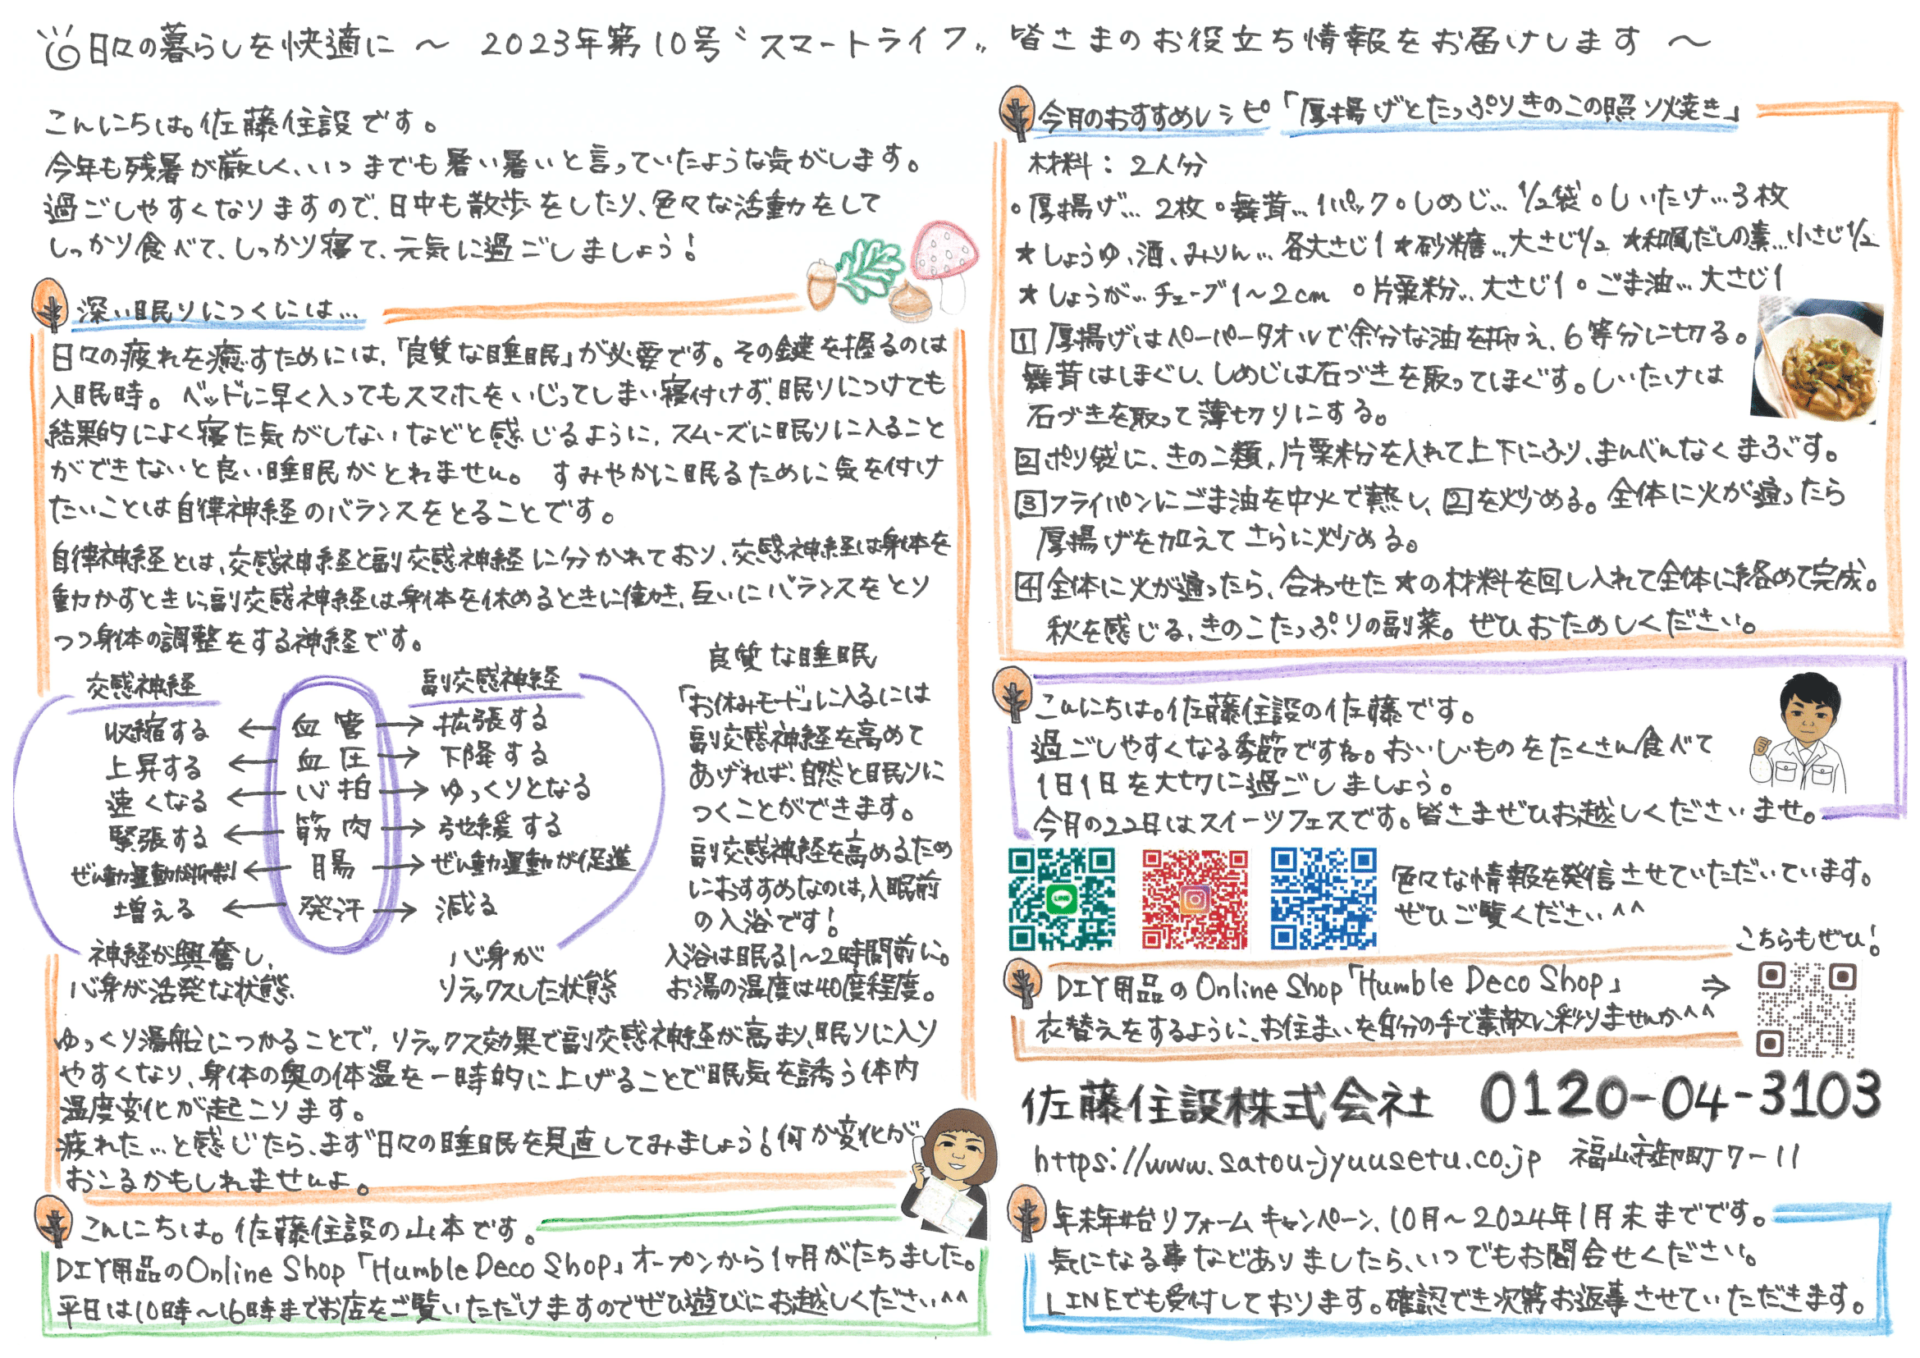 日々の暮らしを快適に ～ 2023年第10号〝スマートライフ〟 皆さまのお役立ち情報をお届けします ～
こんにちは。佐藤住設です。
今年も残暑が厳しく、いつまでも暑い暑いと言っていたような気がします。
過ごしやすくなりますので、日中も散歩をしたり、色々な活動をして
しっかり食べて、しっかり寝て、元気に過ごしましょう！
深い眠りにつくには…
日々の疲れを癒すためには、「良質な睡眠」が必要です。その鍵を握るのは
入眠時。 ベッドに早く入ってもスマホをいじってしまい寝付けず、眠りにつけても
結果的によく寝た気がしないなどと感じるように、スムーズに眠りに入ること
ができないと良い睡眠がとれません。 すみやかに眠るために気を付け
たいことは自律神経のバランスをとることです。
自律神経とは、交感神経と副交感神経に分かれており、交感神経は身体を
動かすときに、副交感神経は身体を休めるときに働き、互いにバランスをとり
つつ身体の調整をする神経です。
交感神経 副交感神経
収縮する ← 血管 → 拡張する
上昇する ← 血圧 → 下降する
速くなる ← 心拍 → ゆっくりとなる
緊張する ← 筋肉 → 弛緩する
ぜん動運動が抑制 ← 腸 → ぜん動運動が促進
増える ← 発汗 → 減る
神経が興奮し、
心身が活発な状態
心身が
リラックスした状態
良質な睡眠
「お休みモード」に入るには
副交感神経を高めて
あげれば、自然と眠りに
つくことができます。
副交感神経を高めるため
におすすめなのは、入眠前
の入浴です！
入浴は眠る1～2時間前に。
お湯の温度は40度程度。
ゆっくり湯船につかることで、リラックス効果で副交感神経が高まり、眠りに入り
やすくなり、身体の奥の体温を一時的に上げることで眠気を誘う体内
温度変化が起こります。
疲れた…と感じたら、まず日々の睡眠を見直してみましょう！何か変化が
おこるかもしれませんよ。
こんにちは。佐藤住設の山本です。
DIY用品のOnline Shop「Humble Deco Shop」オープンから1ヶ月がたちました。
平日は10時～16時までお店をご覧いただけますのでぜひ遊びにお越しください^^
今月のおすすめレシピ「厚揚げとたっぷりきのこの照り焼き」
材料：2人分
○厚揚げ…2枚○舞茸…1パック○しめじ…1/2袋○しいたけ…3枚
★しょうゆ、酒、みりん…各大さじ1★砂糖…大さじ1/2 ★和風だしの素…小さじ1/2
★しょうが…チューブ1～2cm ○片栗粉…大さじ1○ごま油…大さじ1
1 厚揚げはペーパータオルで余分な油を抑え、6等分に切る。
舞茸はほぐし、しめじは石づきを取ってほぐす。しいたけは
石づきを取って薄切りにする。
2 ポリ袋に、きのこ類、片栗粉を入れて上下にふり、まんべんなくまぶす。
3 フライパンにごま油を中火で熱し、2を炒める。全体に火が通ったら
厚揚げを加えてさらに炒める。
4 全体に火が通ったら、合わせた★の材料を回し入れて全体に絡めて完成。
秋を感じる、きのこたっぷりの副菜。ぜひおためしください。
こんにちは。佐藤住設の佐藤です。
過ごしやすくなる季節ですね。おいしいものをたくさん食べて
1日1日を大切に過ごしましょう。
今月の22日はスイーツフェスです。皆さまぜひお越しくださいませ。
LINE
色々な情報を発信させていただいています。
ぜひご覧ください^^
こちらもぜひ！
DIY用品のOnline Shop「Humble Deco Shop」 ⇒
衣替えをするように、お住まいを自分の手で素敵に彩りませんか^^
佐藤住設株式会社 0120-04-3103
https://www.satou-jyuusetu.co.jp 福山市御町7-11
年末年始リフォームキャンペーン、10月～2024年1月末までです。
気になる事などありましたら、いつでもお問合せください。
LINEでも受付しております。確認でき次第お返事させていただきます。